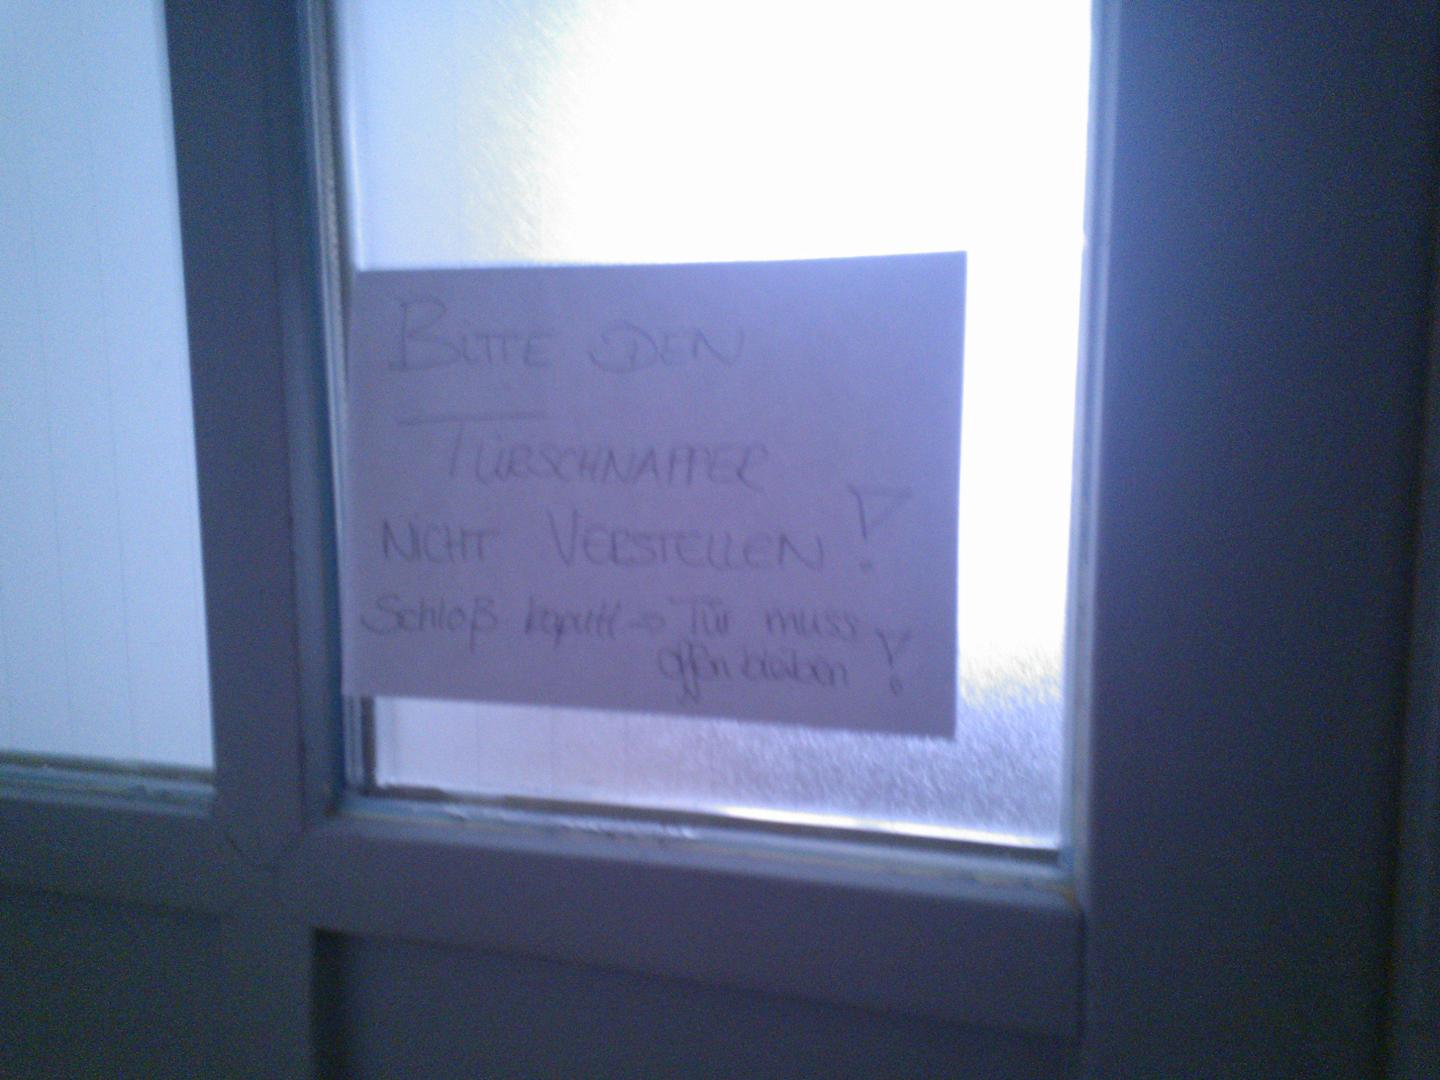 BITTE DEN
TÜRSCHNAPPER
NICHT VERSTELLEN!
Schloß kaputt => Tür muss
offen bleiben!